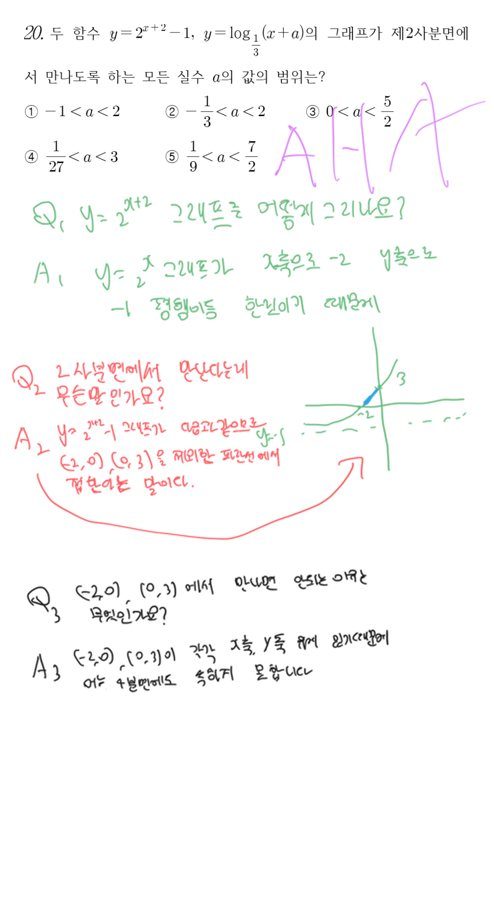 20. 두 함수 y=2^{x+2}-1, y=log_{1/3}(x+a)의 그래프가 제2사분면에
서 만나도록 하는 모든 실수 a의 값의 범위는?
① -1<a<2 ② -1/3<a<2 ③ 0<a<5/2
④ 1/27<a<3 ⑤ 1/9<a<7/2
AHA
Q1 y=2^{x+2} 그래프는 어떻게 그리나요?
A1 y=2^x 그래프가 x축으로 -2 y축으로
-1 평행이동 한것이기 때문에
Q2 2사분면에서 만난다는게
무슨말인가요?
A2 y=2^{x+2}-1 그래프가 다음과같으므로
(-2,0), (0,3)을 제외한 파란선에서
접한다는 말이다.
3
-2
y=-1
Q3 (-2,0), (0,3)에서 만나면 안되는 이유는
무엇인가요?
A3 (-2,0), (0,3)이 각각 x축, y축 위에 있기때문에
어느 4분면에도 속하지 못합니다